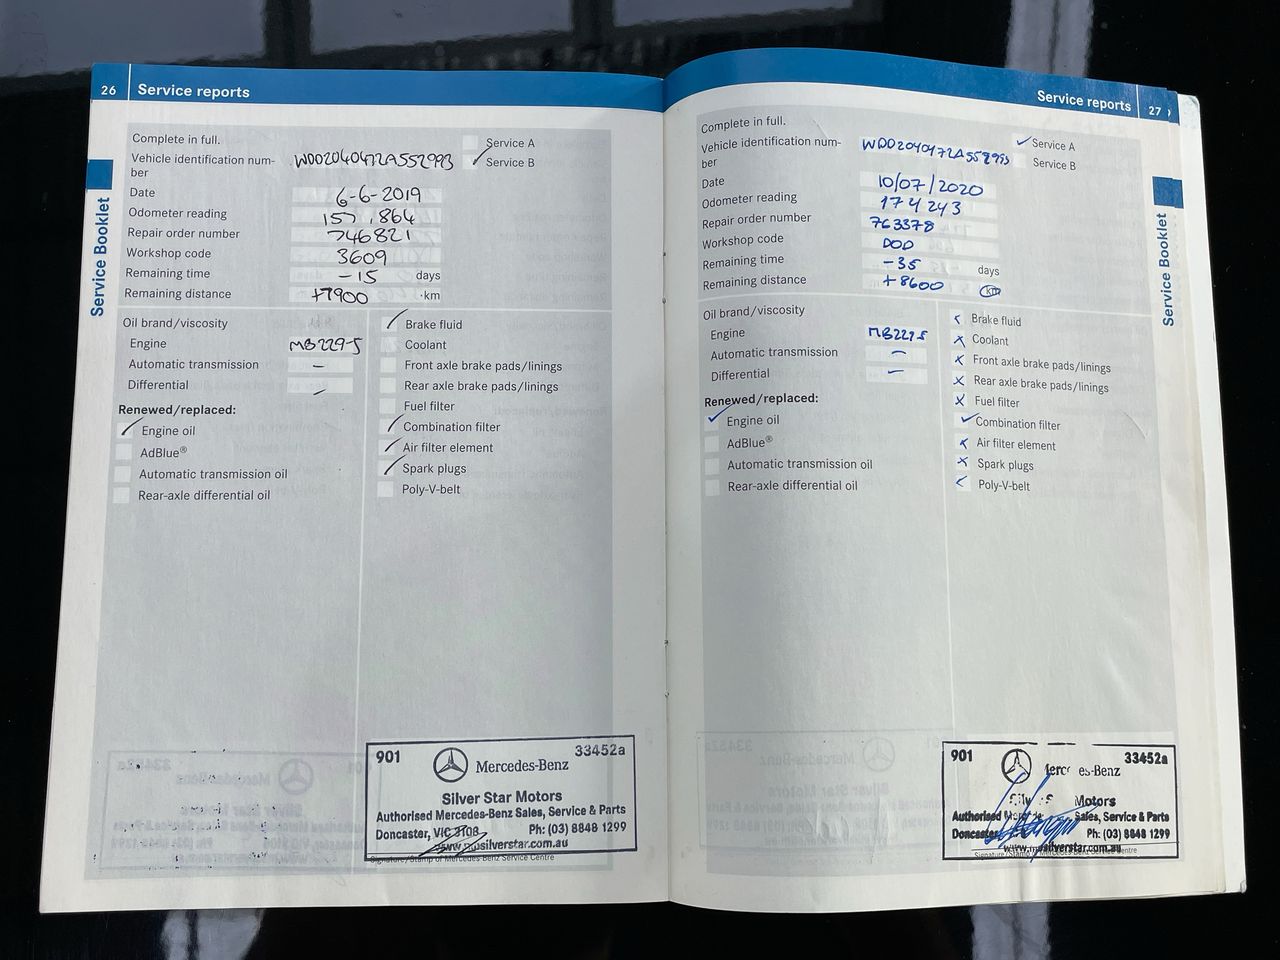 26 Service reports
Complete in full.
Service A
Vehicle identification num-
ber
WDD2040472A552993
Service B
Date 6-6-2019
Odometer reading 157,864
Repair order number 746821
Workshop code 3609
Remaining time -15 days
Remaining distance +7900 km
Oil brand/viscosity
Engine MB229-5
Automatic transmission -
Differential -
Renewed/replaced:
Engine oil
AdBlue®
Automatic transmission oil
Rear-axle differential oil
Brake fluid
Coolant
Front axle brake pads/linings
Rear axle brake pads/linings
Fuel filter
Combination filter
Air filter element
Spark plugs
Poly-V-belt
Service Booklet
901 Mercedes-Benz 33452a
Silver Star Motors
Authorised Mercedes-Benz Sales, Service & Parts
Doncaster, VIC 3108 Ph: (03) 8848 1299
www.mbsilverstar.com.au
Signature/Stamp of Mercedes-Benz Service Centre
Service reports 27
Complete in full.
Service A
Vehicle identification num-
ber
WDD2040472A552993
Service B
Date 10/07/2020
Odometer reading 174243
Repair order number 763378
Workshop code DOD
Remaining time -35 days
Remaining distance +8600 km
Oil brand/viscosity
Engine MB229-5
Automatic transmission -
Differential -
Renewed/replaced:
Engine oil
AdBlue®
Automatic transmission oil
Rear-axle differential oil
Brake fluid
Coolant
Front axle brake pads/linings
Rear axle brake pads/linings
Fuel filter
Combination filter
Air filter element
Spark plugs
Poly-V-belt
Service Booklet
901 33452a
Motors
Authorised Sales, Service & Parts
Doncaster Ph: (03) 8848 1299
www.mbsilverstar.com.au
Signature/Stamp of Mercedes-Benz Service Centre